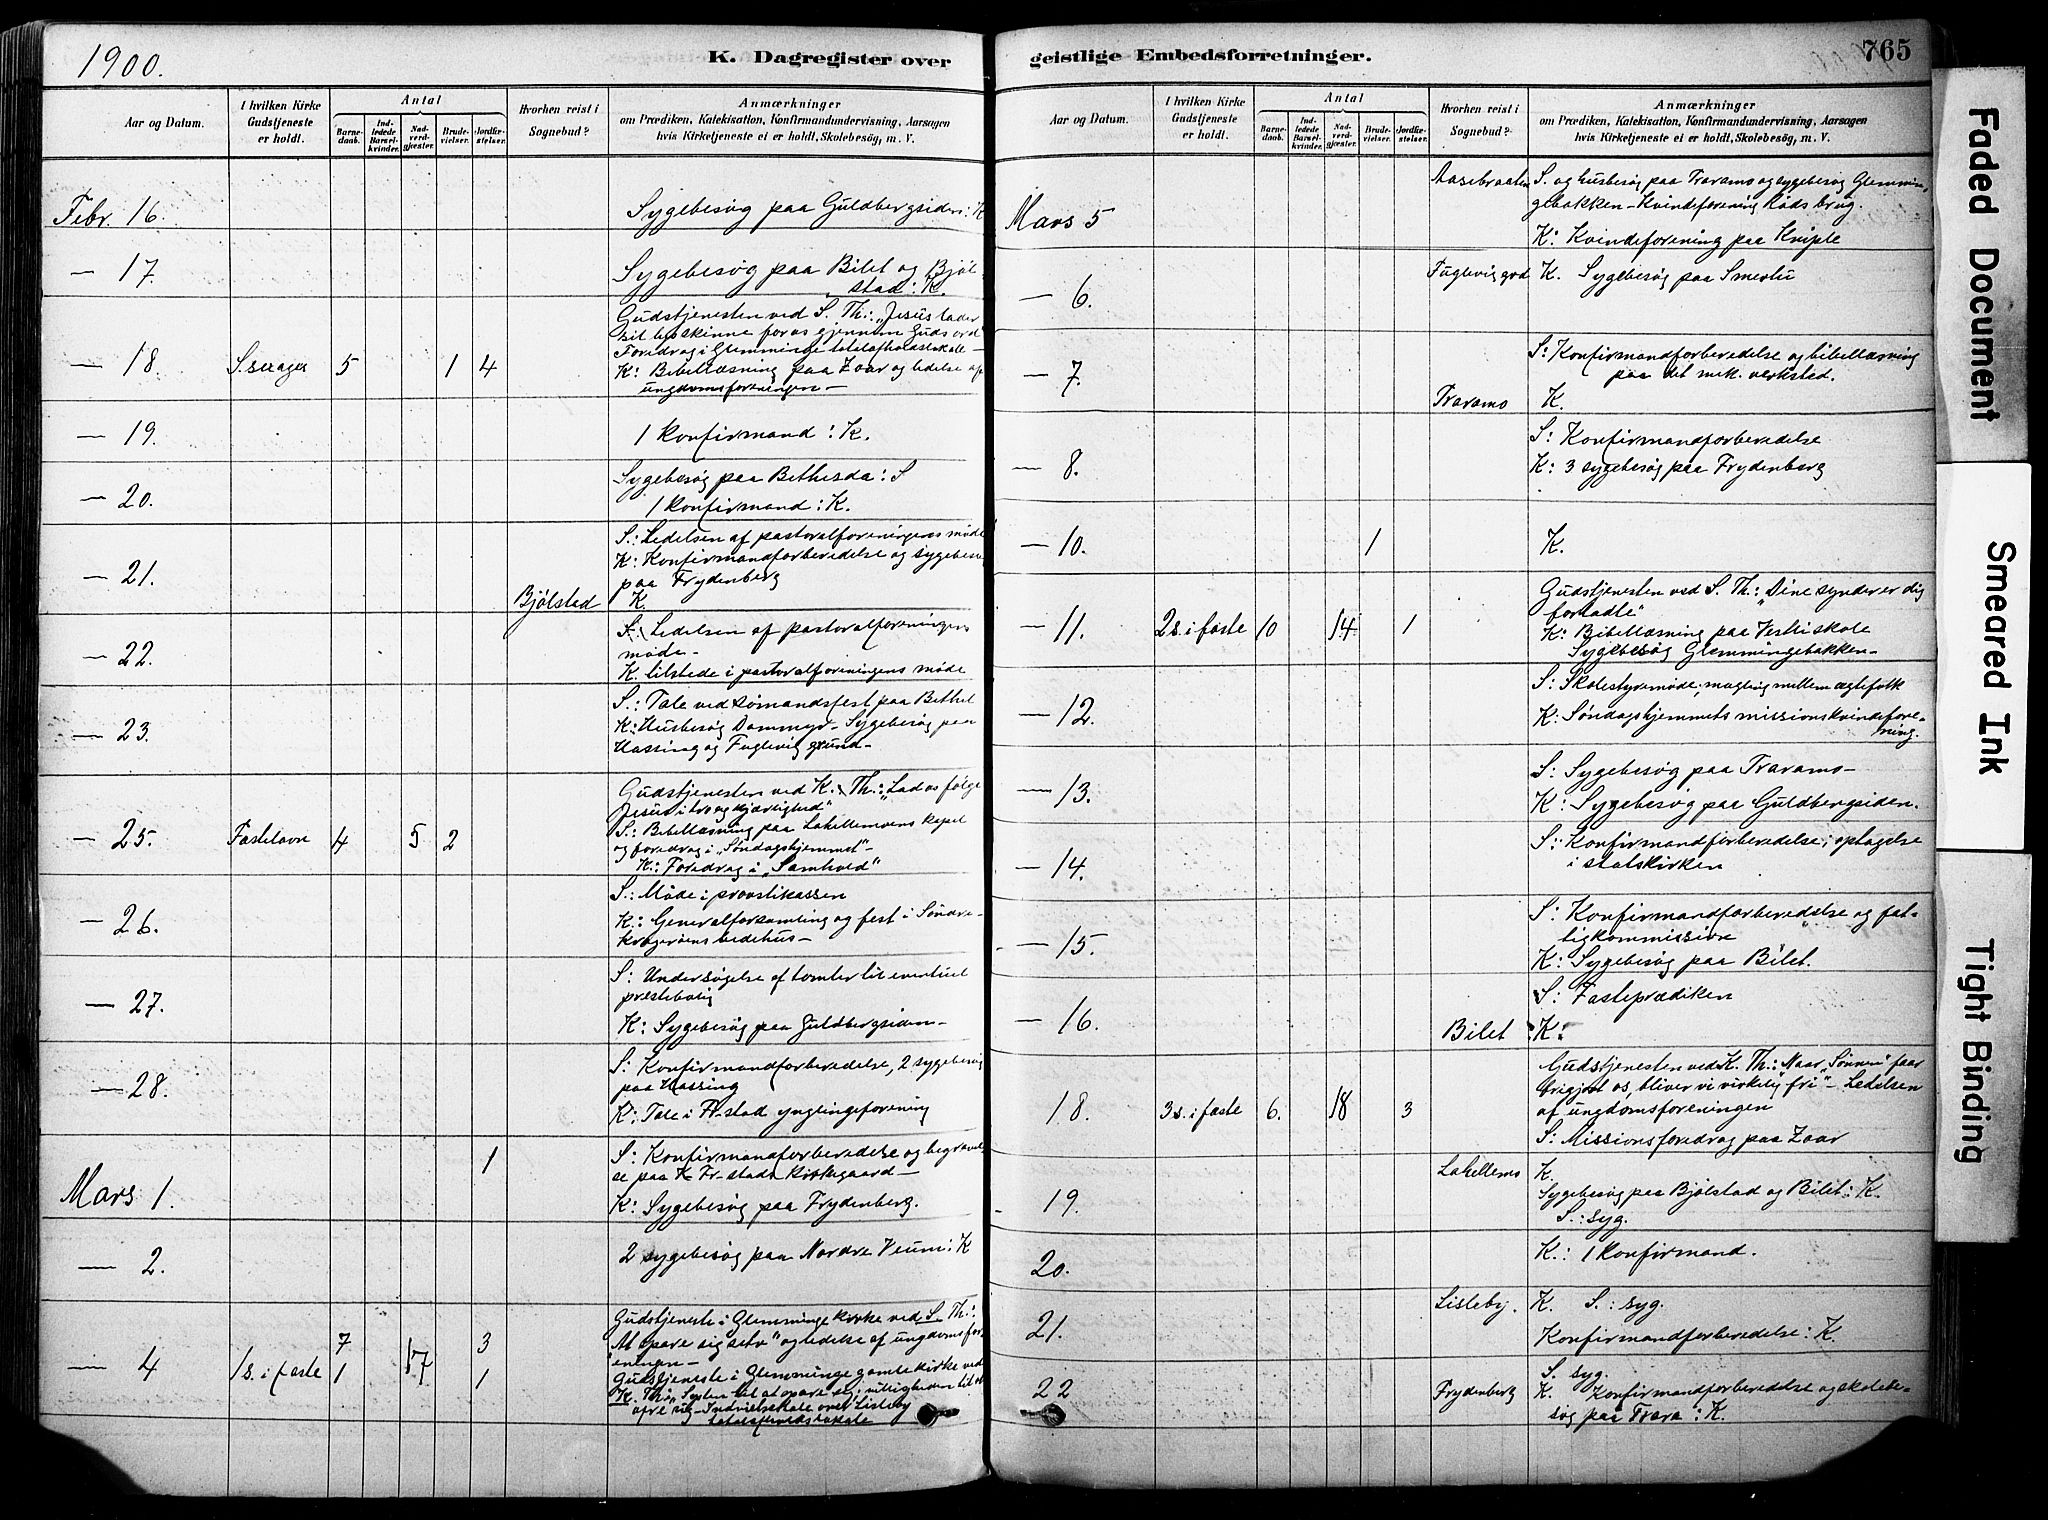 1900.
K. Dagregister over
geistlige Embedsforretninger.
765
Aar og Datum.
I hvilken Kirke Gudstjeneste er holdt.
Antal
Barnedaab.
Indledede Barselkvinder.
Nadverdgjæster.
Brudevielser.
Jordfæstelser.
Hvorhen reist i Sognebud?
Anmærkninger
om Prædiken, Katekisation, Konfirmandundervisning, Aarsagen
hvis Kirketjeneste ei er holdt, Skolebesøg, m. V.
Febr. 16.
Sygebesøg paa Guldbergsiden: K
— 17.
Sygebesøg paa Bilet og Bjøl-
stad: K.
— 18. S. 5 1 4
Gudstjenesten ved S. Th.: "Jesus lader
sit lys skinne for os gjennem Guds ord"
Foredrag i Glemminge totalafholdslokale —
K: Bibellæsning paa Zoar og ledelse af
ungdomsforeningen —
— 19.
1 konfirmand: K.
— 20.
Sygebesøg paa Bethesda: S
1 konfirmand: K.
— 21.
S.: Ledelsen af pastoralforeningens møde
K: Konfirmandforberedelse og sygebesøg
paa Frydenberg
Bjølstad K.
— 22.
S. Ledelsen af pastoralforeningens
møde —
K. tilstede i pastoralforeningens møde
— 23.
S.: Tale ved sømandsfest paa Bethel
K: Husbesøg Dammyr - Sygebesøg paa
Hassing og Fuglevig grund —
— 25. Fastelavn 4 5 2
Gudstjenesten ved K. Th.: "Lad os følge
Jesus i tro og kjærlighed"
S.: Bibellæsning paa Lahellemoens kapel
og foredrag i "Søndagshjemmet" —
K.: Foredrag i "Samhold"
— 26.
S.: Møde i provstikassen
K.: Generalforsamling og fest i Søndre
Kragerøens bedehus —
— 27.
S: Undersøgelse af tomter til eventuel
prestebolig
K: Sygebesøg paa Guldbergsiden —
— 28.
S: Konfirmandforberedelse, 2 sygebesøg
paa Hassing
K: Tale i Fr.stad ynglingeforening
Mars 1. 1
S: Konfirmandforberedelse og begravel-
se paa Fr-stads kirkegaard —
K: Sygebesøg paa Frydenberg.
— 2.
2 sygebesøg paa Nordre Veum: K
— 4 1 s. i faste 7 1 17 3 1
Gudstjeneste i Glemminge kirke ved S. Th.:
At spare sig selv" og ledelse af ungdomsfor-
eningen —
Gudstjeneste i Glemminge gamle kirke ved
K. Th.:
Indvielsestale over Lisleby
totalafholdslokale
Aar og Datum.
I hvilken Kirke Gudstjeneste er holdt.
Antal
Barnedaab.
Indledede Barselkvinder.
Nadverdgjæster.
Brudevielser.
Jordfæstelser.
Hvorhen reist i Sognebud?
Anmærkninger
om Prædiken, Katekisation, Konfirmandundervisning, Aarsagen
hvis Kirketjeneste ei er holdt, Skolebesøg, m. V.
Mars 5 Aasebraaten
S. og husbesøg paa Traramo og sygebesøg Glemmin-
gebakken - Kvindeforening Raadsbrug.
K: Kvindeforening paa Kniple
— 6. Fuglevig grd K. Sygebesøg paa Smertu
— 7.
S: Konfirmandforberedelse og bibellæsning
paa det mek. verksted.
Traramo K.
— 8.
S: Konfirmandforberedelse
K: 3 sygebesøg paa Frydenberg
— 10. 1 K.
— 11. 2 s. i faste 10 14 1
Gudstjenesten ved S. Th.: "Dine synder er dig
forladte"
K: Bibellæsning paa Vestli skole
Sygebesøg Glemmingebakken —
— 12.
S: Skolestyremøde, mægling mellem ægtefolk
K: Søndagshjemmets missionskvindefore-
ning.
— 13.
S: Sygebesøg paa Traramo —
K: Sygebesøg paa Guldbergsiden.
— 14.
S: Konfirmandforberedelse; optagelse
i statskirken
— 15.
S: Konfirmandforberedelse og fat-
tigkommission
K: Sygebesøg paa Bilet.
— 16.
S: Fasteprædiken
Bilet K:
— 18. 3 s. i faste 6. 18 3
Gudstjenesten ved K. Th.: Naar "Sønnen" faar
frigjort os, bliver vi virkelig fri" - Ledelsen
af ungdomsforeningen
S: Missionsforedrag paa Zoar
19. Lahellemo K.
Sygebesøg paa Bjølstad og Bilet: K.
S.: syg.
20. K.: 1 konfirmand.
21. Lisleby. K. S.: syg.
Konfirmandforberedelse: K.
22 S. syg.
Frydenberg K. Konfirmandforberedelse og skolebe-
søg paa Trara: K.
Faded Document
Smeared Ink
Tight Binding